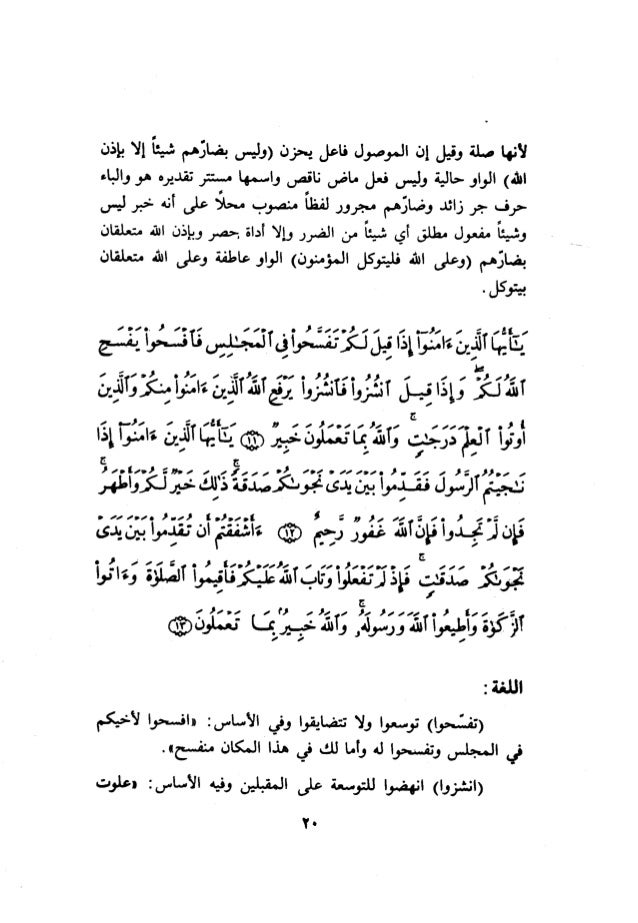 لأنها صلة وقيل إن الموصول فاعل يحزن (وليس بضارّهم شيئاً إلا بإذن
الله) الواو حالية وليس فعل ماض ناقص واسمها مستتر تقديره هو والباء
حرف جر زائد وضارّهم مجرور لفظاً منصوب محلاً على أنه خبر ليس
وشيئاً مفعول مطلق أي شيئاً من الضرر وإلا أداة حصر وبإذن الله متعلقان
بضارّهم (وعلى الله فليتوكل المؤمنون) الواو عاطفة وعلى الله متعلقان
بيتوكل.
يَـٰٓأَيُّهَا ٱلَّذِينَ ءَامَنُوٓا۟ إِذَا قِيلَ لَكُمْ تَفَسَّحُوا۟ فِى ٱلْمَجَـٰلِسِ فَٱفْسَحُوا۟ يَفْسَحِ
ٱللَّهُ لَكُمْ ۖ وَإِذَا قِيلَ ٱنشُزُوا۟ فَٱنشُزُوا۟ يَرْفَعِ ٱللَّهُ ٱلَّذِينَ ءَامَنُوا۟ مِنكُمْ وَٱلَّذِينَ
أُوتُوا۟ ٱلْعِلْمَ دَرَجَـٰتٍ ۚ وَٱللَّهُ بِمَا تَعْمَلُونَ خَبِيرٌ ١١ يَـٰٓأَيُّهَا ٱلَّذِينَ ءَامَنُوٓا۟ إِذَا
نَـٰجَيْتُمُ ٱلرَّسُولَ فَقَدِّمُوا۟ بَيْنَ يَدَىْ نَجْوَىٰكُمْ صَدَقَةً ۚ ذَٰلِكَ خَيْرٌ لَّكُمْ وَأَطْهَرُ ۚ
فَإِن لَّمْ تَجِدُوا۟ فَإِنَّ ٱللَّهَ غَفُورٌ رَّحِيمٌ ١٢ ءَأَشْفَقْتُمْ أَن تُقَدِّمُوا۟ بَيْنَ يَدَىْ
نَجْوَىٰكُمْ صَدَقَـٰتٍ ۚ فَإِذْ لَمْ تَفْعَلُوا۟ وَتَابَ ٱللَّهُ عَلَيْكُمْ فَأَقِيمُوا۟ ٱلصَّلَوٰةَ وَءَاتُوا۟
ٱلزَّكَوٰةَ وَأَطِيعُوا۟ ٱللَّهَ وَرَسُولَهُۥ ۚ وَٱللَّهُ خَبِيرٌۢ بِمَا تَعْمَلُونَ ١٣
اللغة:
(تفسّحوا) توسعوا ولا تتضايقوا وفي الأساس: «افسحوا لأخيكم
في المجلس وتفسحوا له وأما لك في هذا المكان منفسح».
(انشزوا) انهضوا للتوسعة على المقبلين وفيه الأساس: «علوت
٢٠